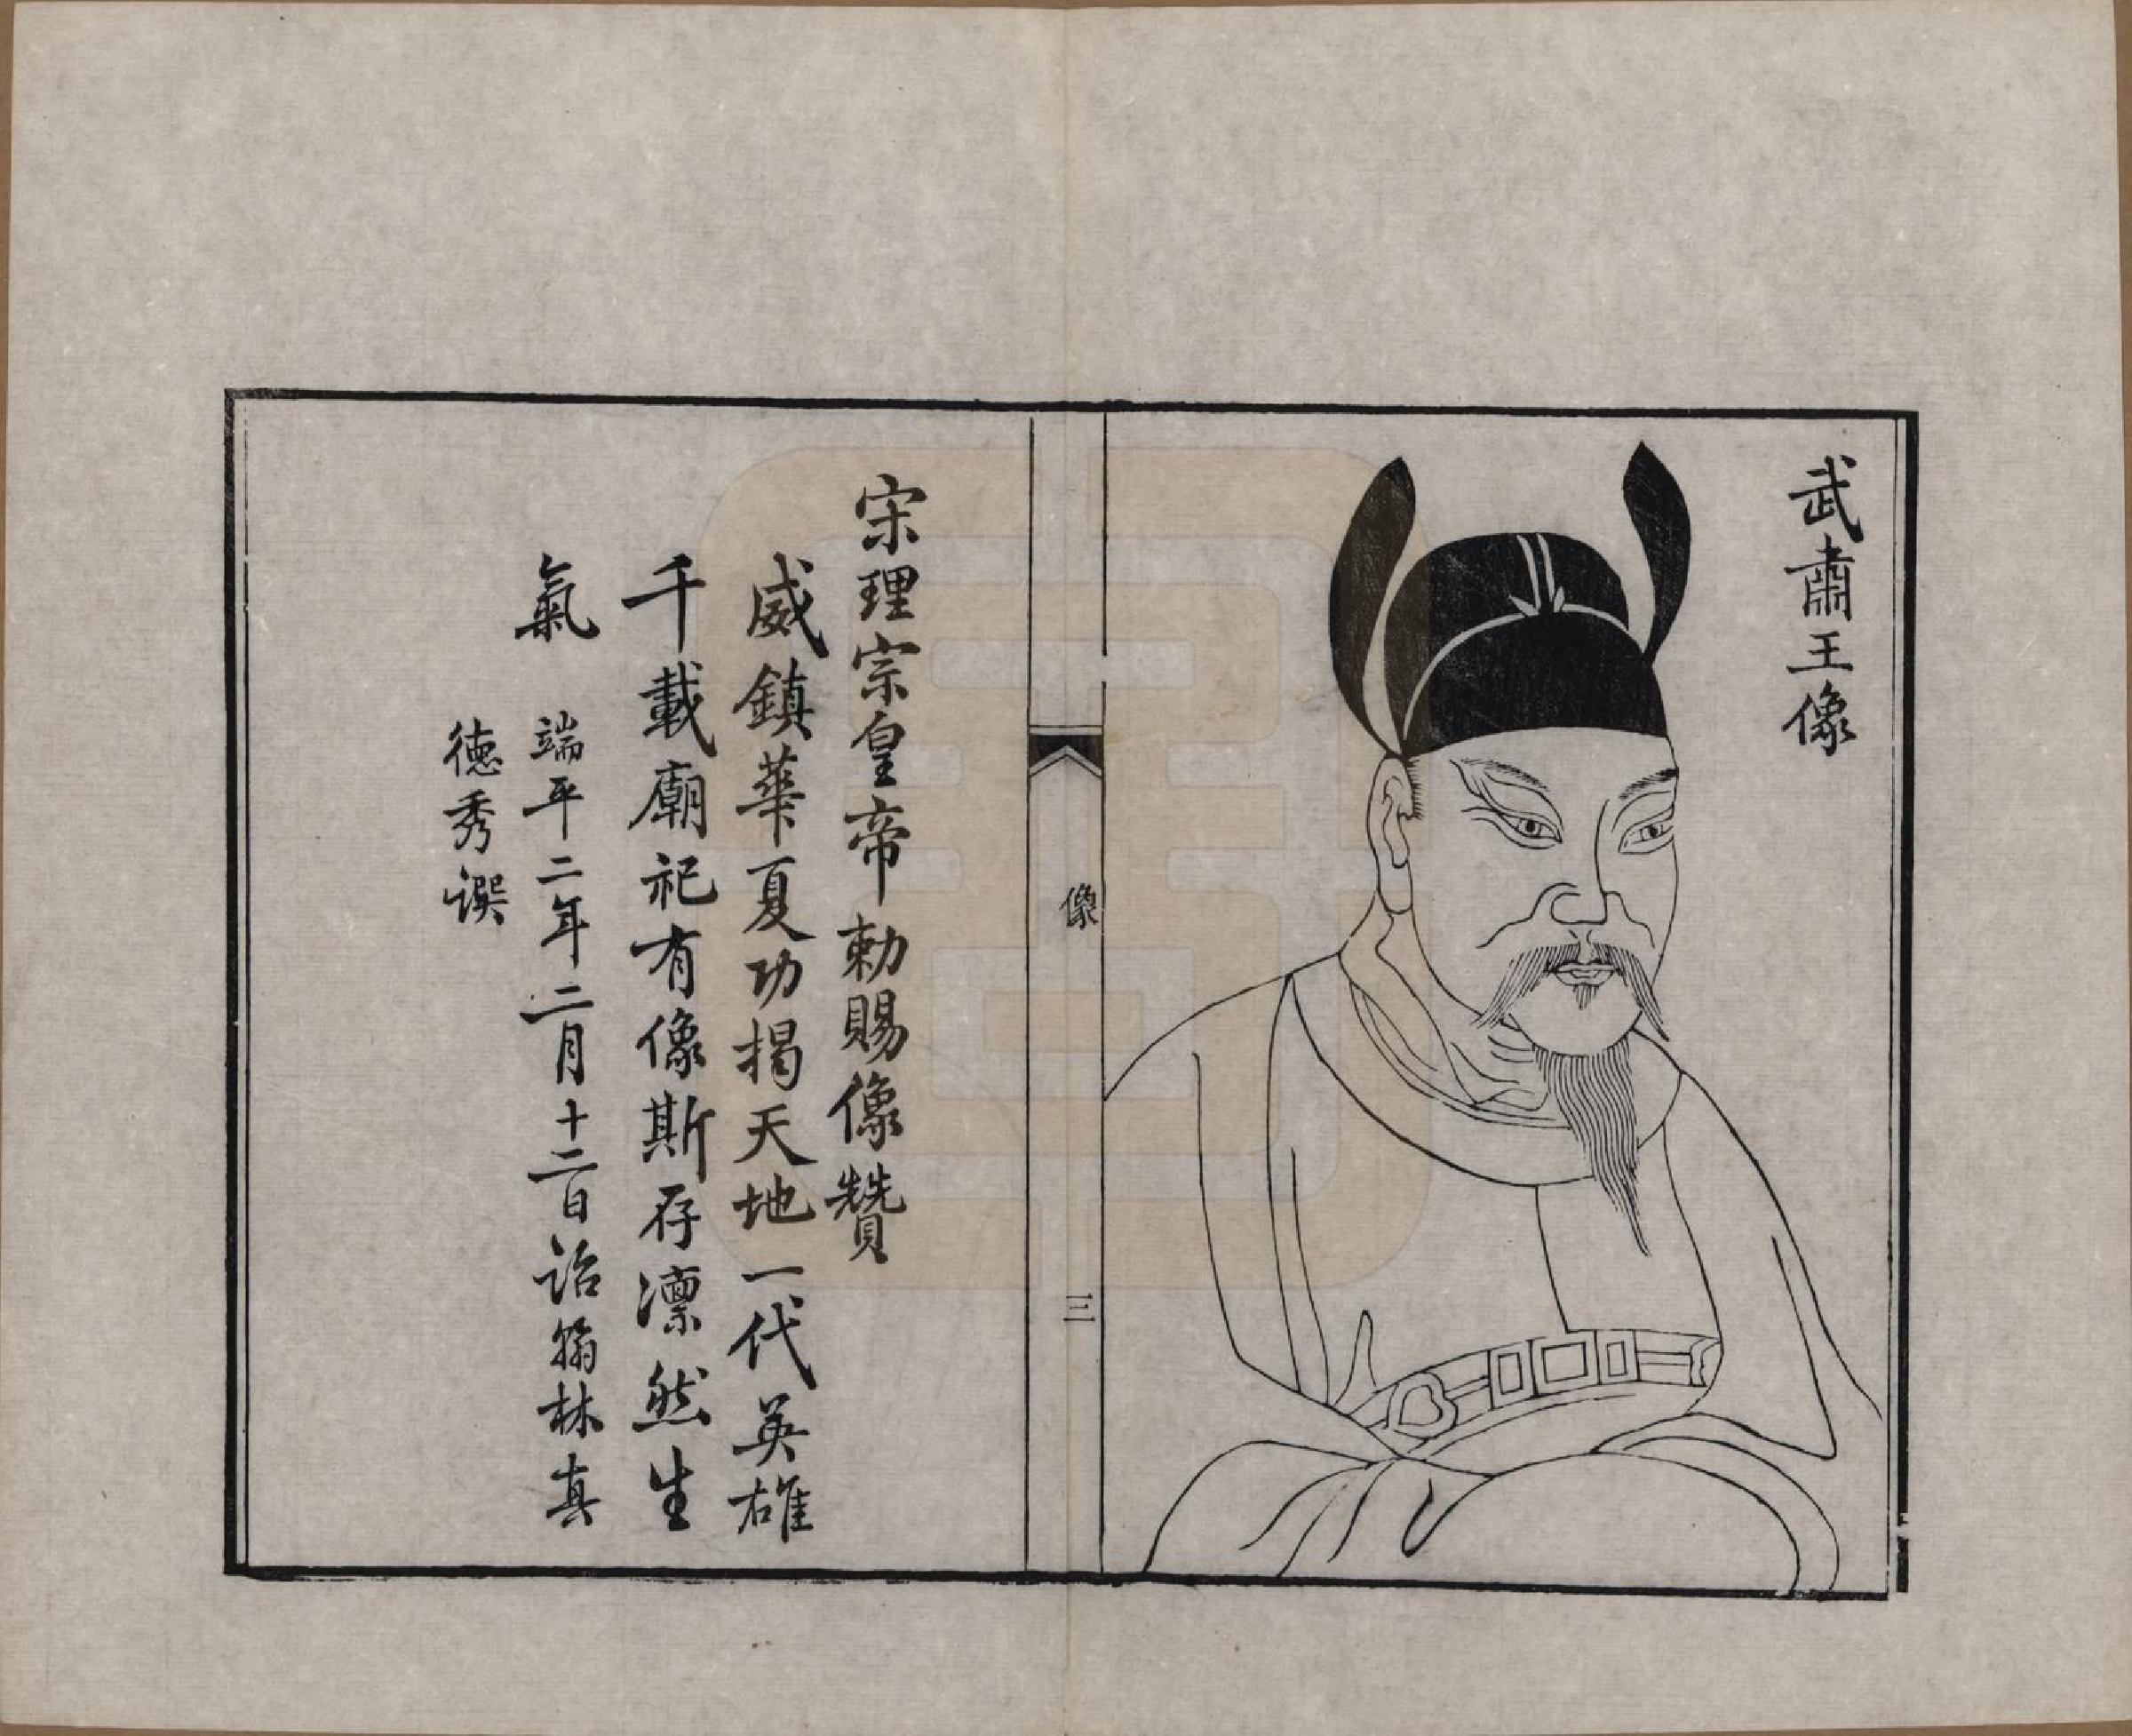 武肅王像
像
三
宋理宗皇帝勅賜像贊
威鎮華夏功揭天地一代英雄
千載廟祀有像斯存凛然生
氣 端平二年二月十二日詔翰林真
德秀譔